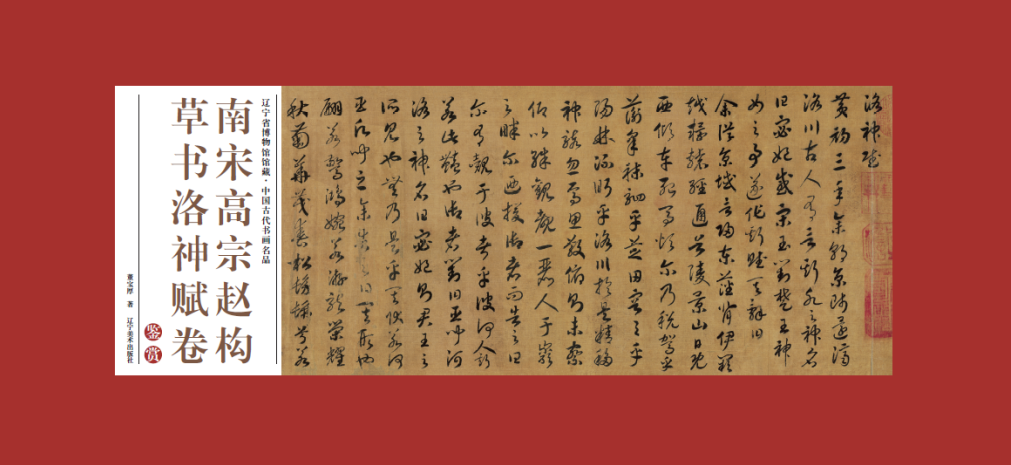 辽宁省博物馆馆藏·中国古代书画名品
南宋高宗赵构
草书洛神赋卷
鉴赏
董宝厚 著 辽宁美术出版社
洛神賦
黄初三年余朝京師還濟
洛川古人有言斯水之神名
曰宓妃感宋玉對楚王神
女之事遂作斯賦其辭曰
余從京域言歸東藩背伊闕
越轘轅經通谷陵景山日既
西傾車殆馬煩尔乃税駕乎
蘅皋秣駟乎芝田容與乎
陽林流眄乎洛川於是精移
神駭忽焉思散俯則未察
仰以殊觀覩一麗人于巖
之畔尔迺援御者而告之曰
尔有覿于彼者乎彼何人斯
若此豔也御者對曰臣聞河
洛之神名曰宓妃則君王之
所見也無乃是乎其狀若何
臣願聞之余告之曰其形也
翩若驚鴻婉若游龍榮耀
秋菊華茂春松髣髴兮若